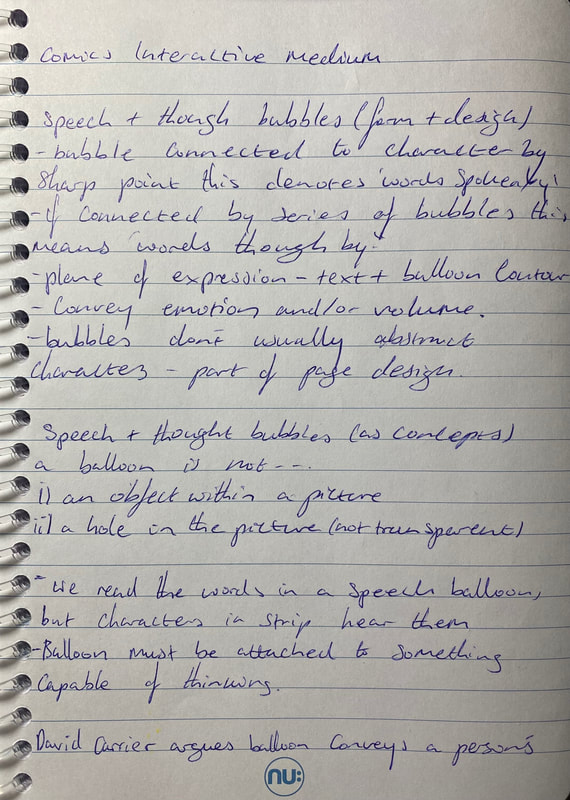 Comics Interactive medium
Speech + though bubbles (form + design)
- bubble connected to character by
sharp point this denotes 'words spoken by'
- if connected by series of bubbles this
means 'words though by'
- plane of expression - text + balloon contour
- Convey emotion and/or volume.
- bubbles don't usually obstruct
characters - part of page design.
Speech + thought bubbles (as concepts)
a balloon is not ---.
i) an object within a picture
ii) a hole in the picture (not transparent)
- we read the words in a speech balloon,
but characters in strip hear them
- Balloon must be attached to something
capable of thinking.
David Carrier argues balloon conveys a person's
nu: